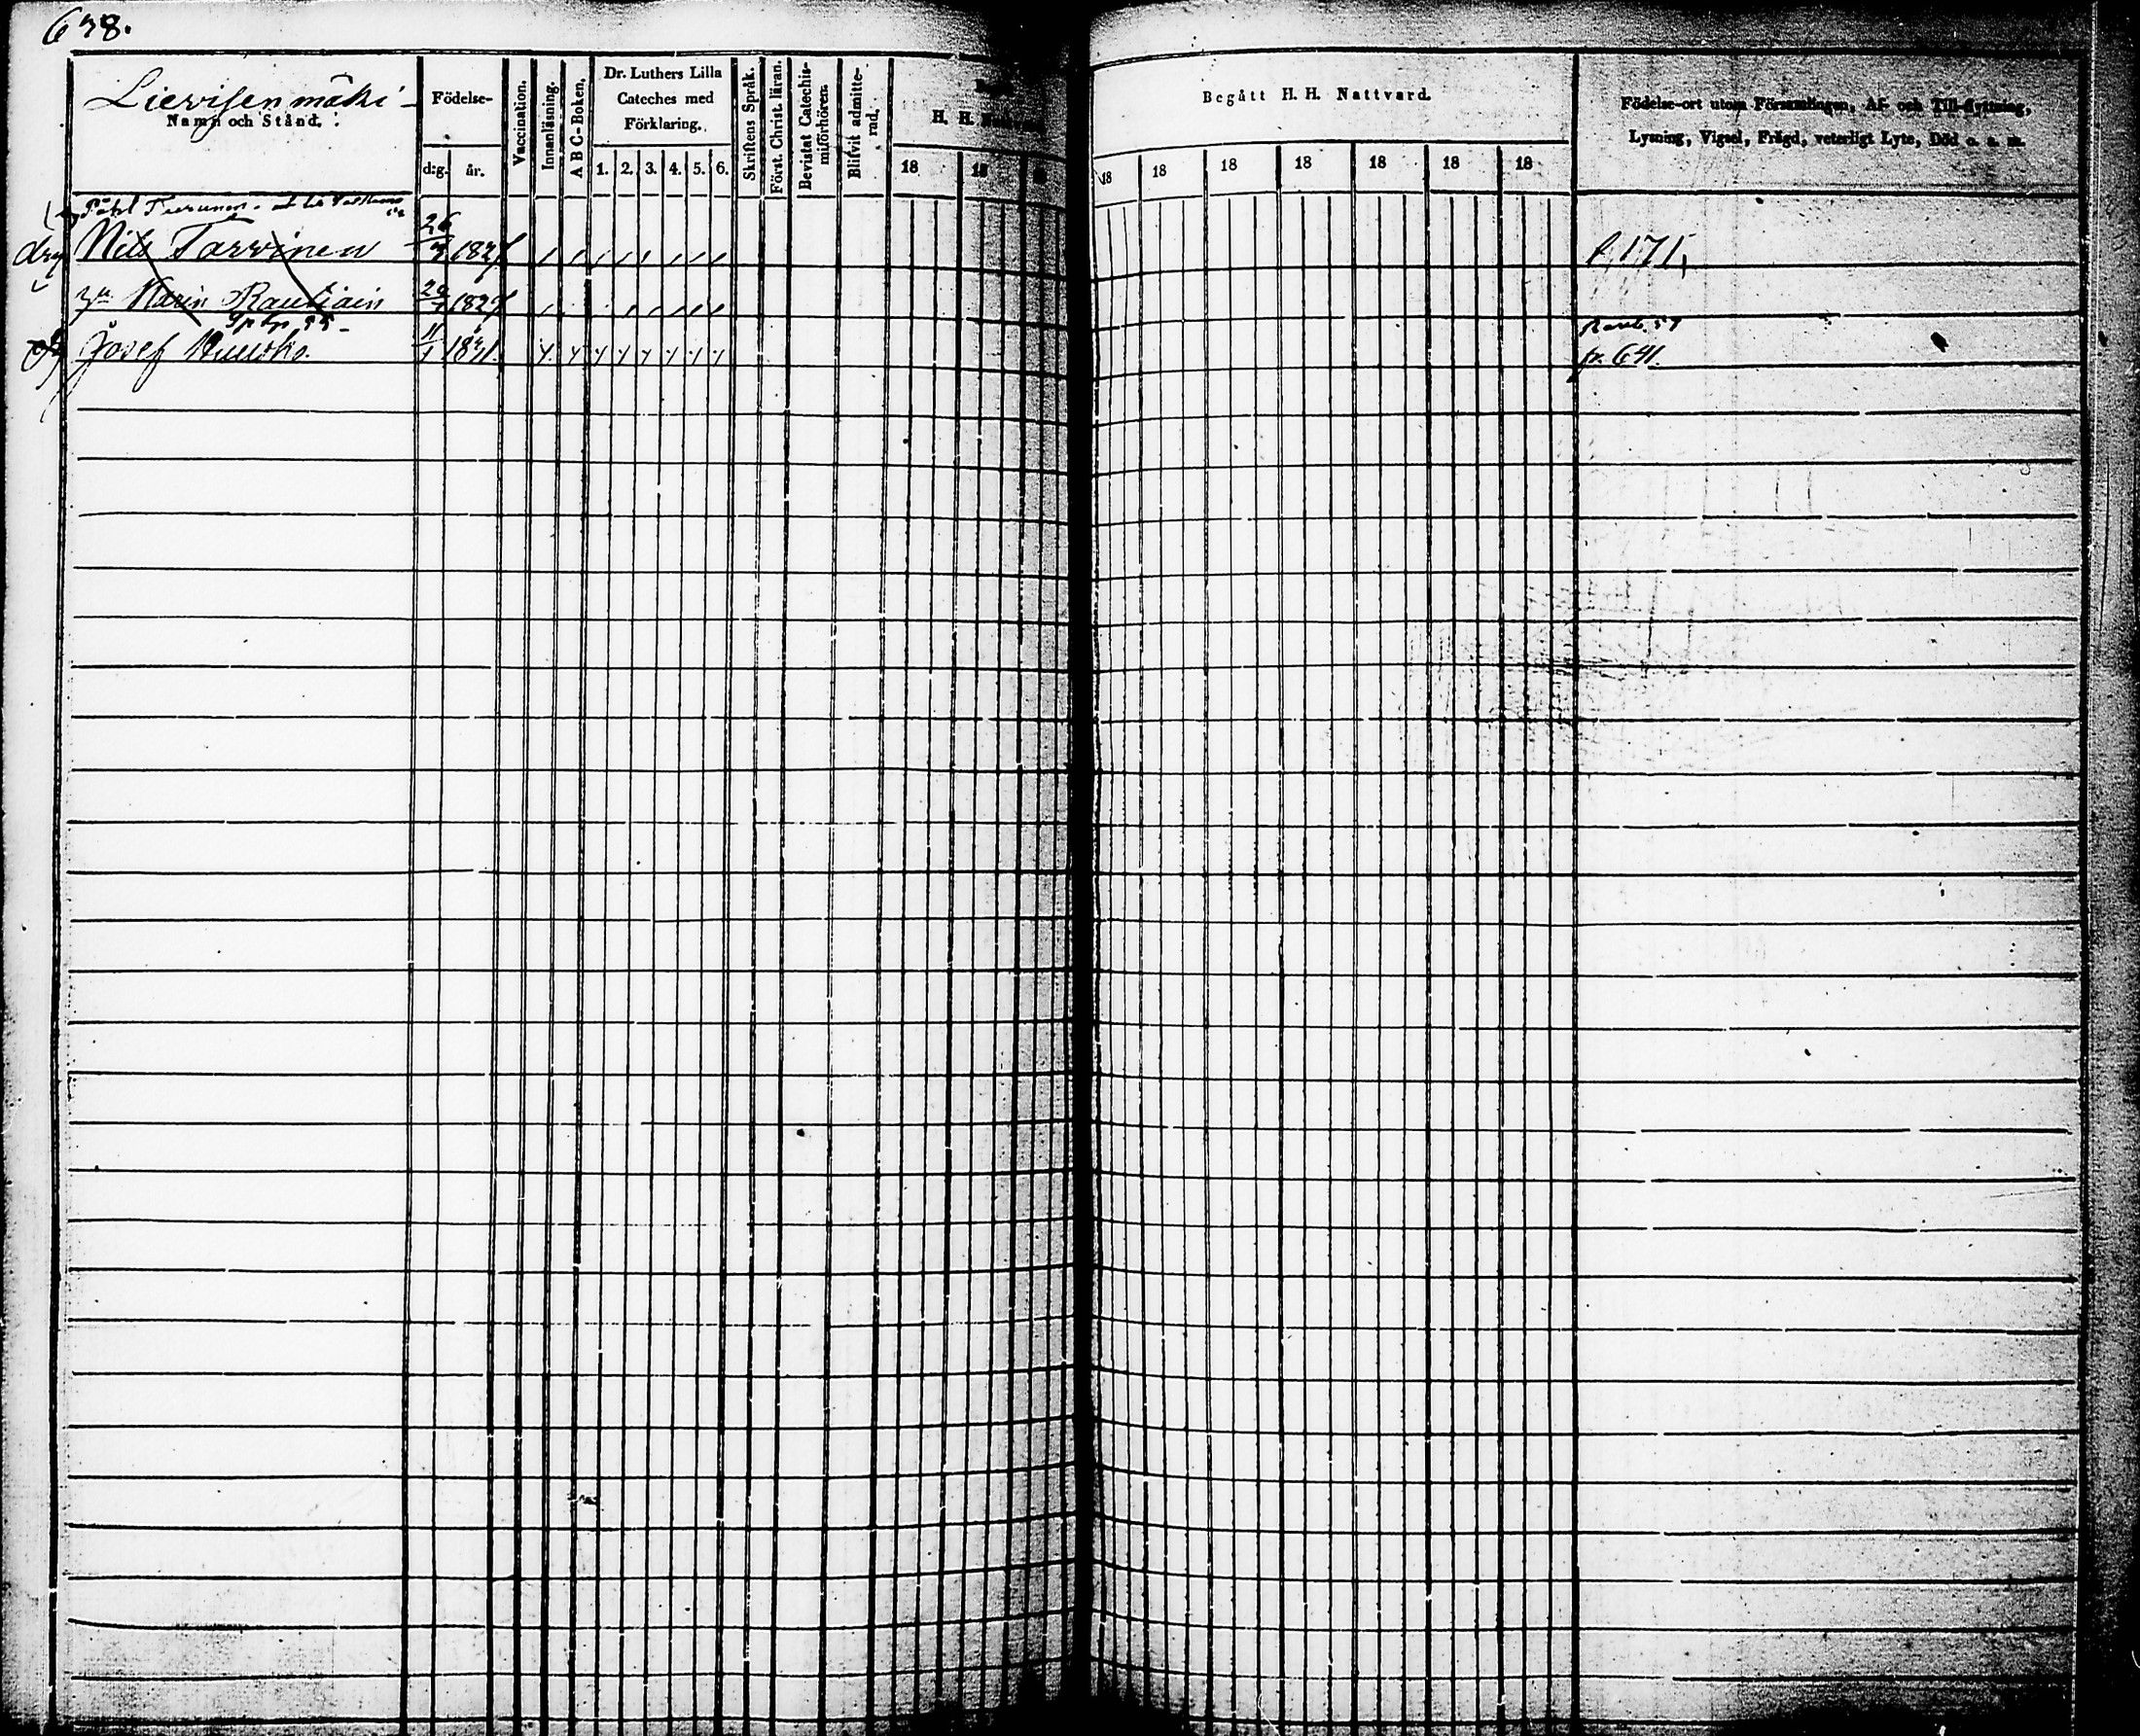 638.
Lievisen mäki
Namn och Stånd.
Födelse-
d:g. år.
Vaccination.
Innanläsning.
ABC-Boken.
Dr. Luthers Lilla
Cateches med
Förklaring.
1. 2. 3. 4. 5. 6.
Skriftens Språk.
Först. Christ. läran.
Bevistat Catechis-
miförhören.
Blifvit admitte-
rad,
H. H.
18 18
Begått H. H. Nattvard.
18 18 18 18 18 18 18
Födelse-ort utom Församlingen, Af- och Till-flyttning,
Lysning, Vigsel, Frägd, veterligt Lyte, Död o. s. m.
Påhl Turunen
Nils Tarvinen 26 1827 p. 171,
Karin Rautiain 1827
Josef 11/1 1841 p. 641.